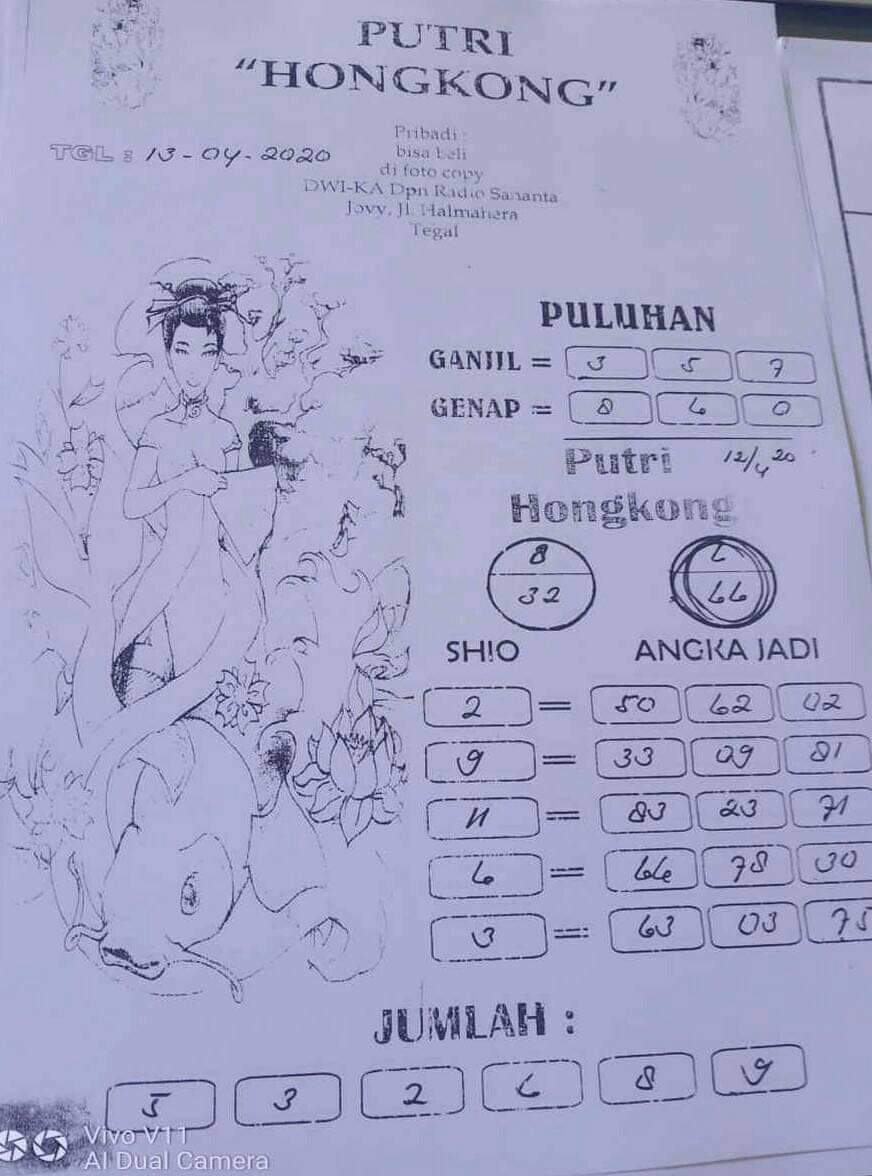 PUTRI
“HONGKONG”
TGL : 13-04-2020
Pribadi :
bisa beli
di foto copy
DWI-KA Dpn Radio Sananta
Jovy, Jl. Halmahera
Tegal
PULUHAN
GANJIL = 3 5 7
GENAP = 8 6 0
Putri 12/4 20
Hongkong
8 6
32 66
SHIO ANGKA JADI
2 = 50 62 02
9 = 33 09 81
11 = 83 23 71
6 = 66 78 30
3 = 63 03 75
JUMLAH :
5 3 2 6 8 9
Vivo V11
AI Dual Camera